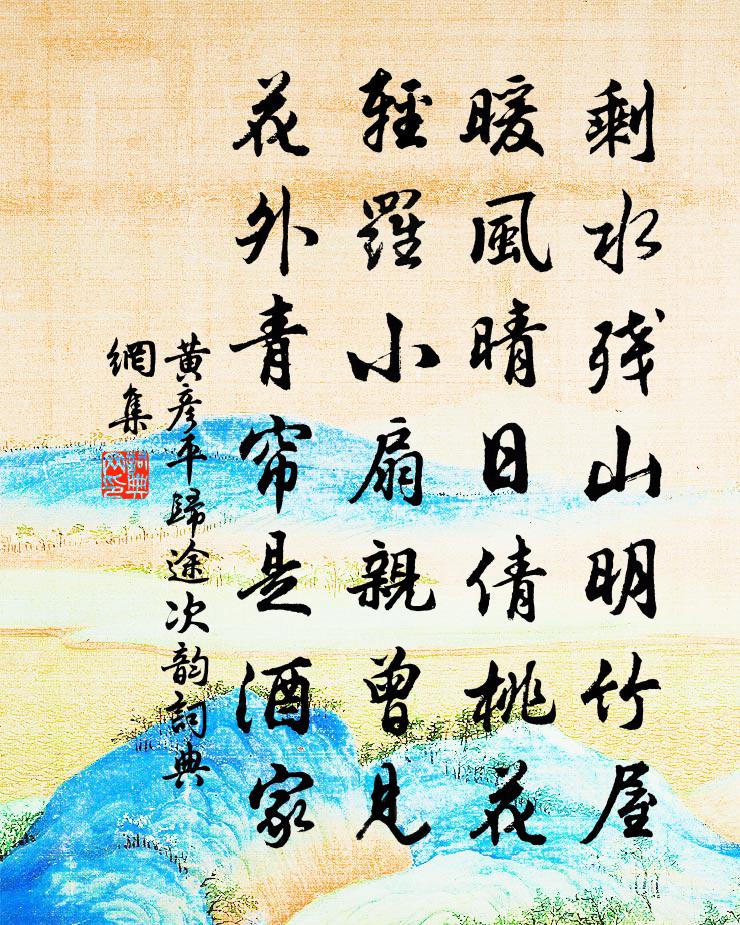 剩水残山明竹屋
暖風晴日倩桃花
輕羅小扇親曾見
花外青帘是酒家
黄彦平歸途次韵詞典
網集